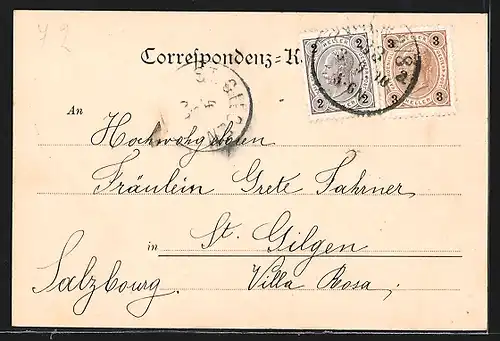 42
Correspondenz-K
2 HELLER 2
2 2
3 3
HELLER
3 3
ST. GILGEN
An
Hochwohgeboren
Fräulein Grete Fahrner
in St. Gilgen
Salzbourg. Villa Rosa.